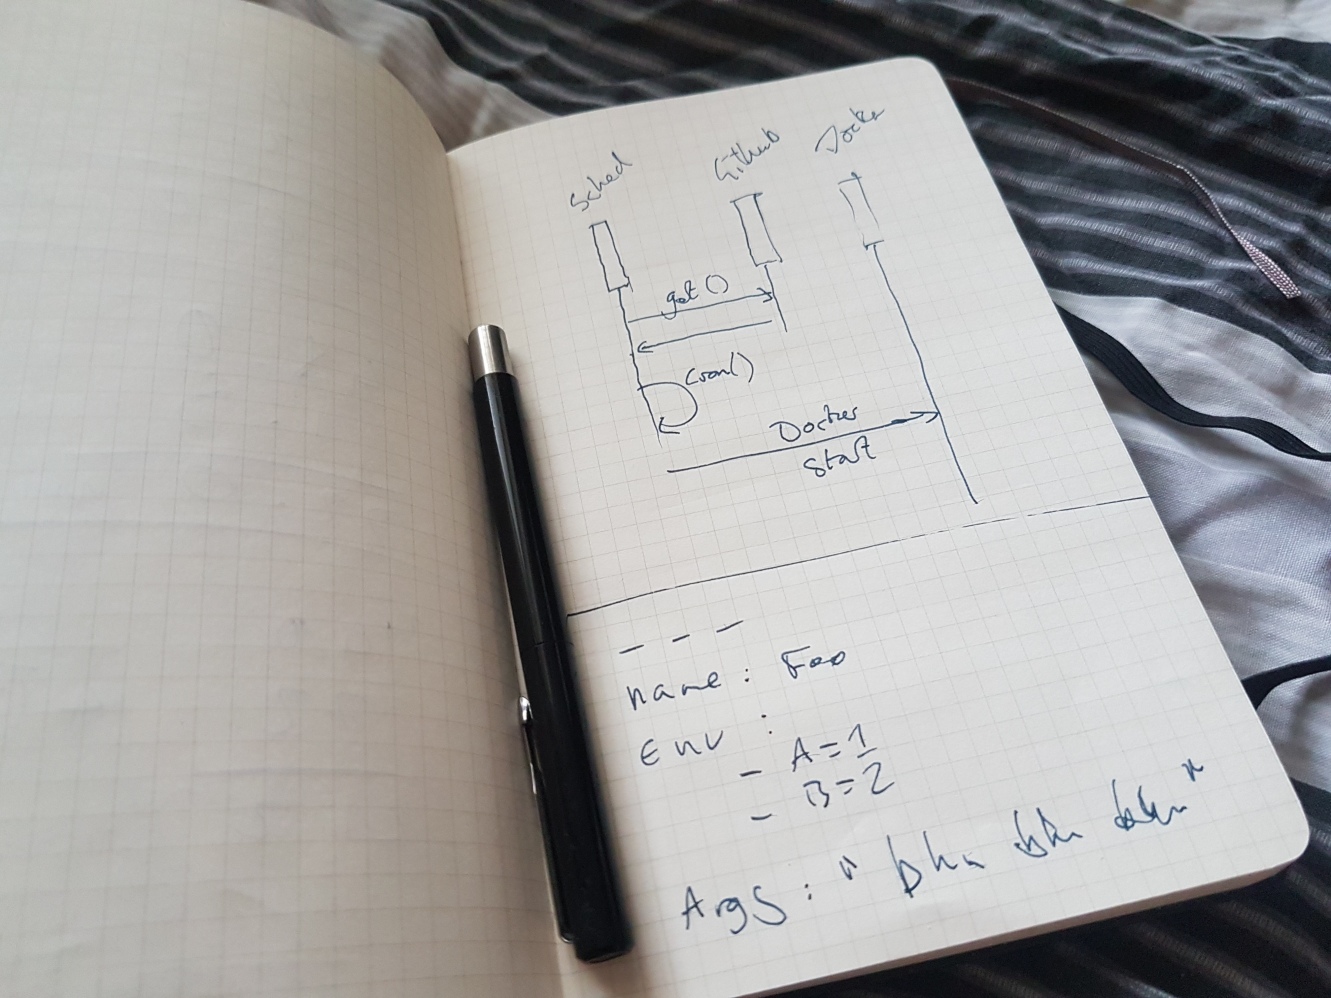 Sched Github Docker
get()
(van()
Docker
Start
---
name: Foo
Env:
- A=1
- B=2
Args: "bha